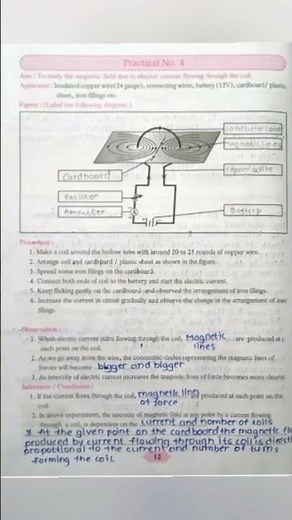 Practical No. 4
Aim : To study the magnetic field due to electric current flowing through the coil.
Apparatus : Insulated copper wire (24 gauge), connecting wires, battery (12V), cardboard/ plastic
sheet, iron filings etc.
Figure : (Label the following diagram.)
Magnetic lines
Cardboard
copper wire
Ammeter
Battery
Procedure :
1. Make a coil around the hollow tube with around 20 to 25 rounds of copper wire.
2. Arrange coil and cardboard / plastic sheet as shown in the figure.
3. Spread some iron filings on the cardboard.
4. Connect both ends of coil to the battery and start the electric current.
5. Keep flicking gently on the cardboard and observed the arrangement of iron filings.
6. Increase the current in circuit gradually and observe the change in the arrangement of iron
filings.
Observation :
1. When electric current starts flowing through the coil, Magnetic lines are produced at
each point on the coil.
2. As we go away from the wire, the concentric circles representing the magnetic lines of
forces will become bigger and bigger
3. As intensity of electric current increases the magnetic lines of force becomes more clearer.
Inference / Conclusion :
1. If the current flows through the coil, magnetic line of force produced at each point on the
coil.
2. In above experiment, the intensity of magnetic field at any point by a current flowing
through a coil, is dependent on the current and nomber of coils
3 At the given point on the cardboard the magnetic
produced by current flowing through its coil is
propotional to the current and number of turns
forming the coil
12